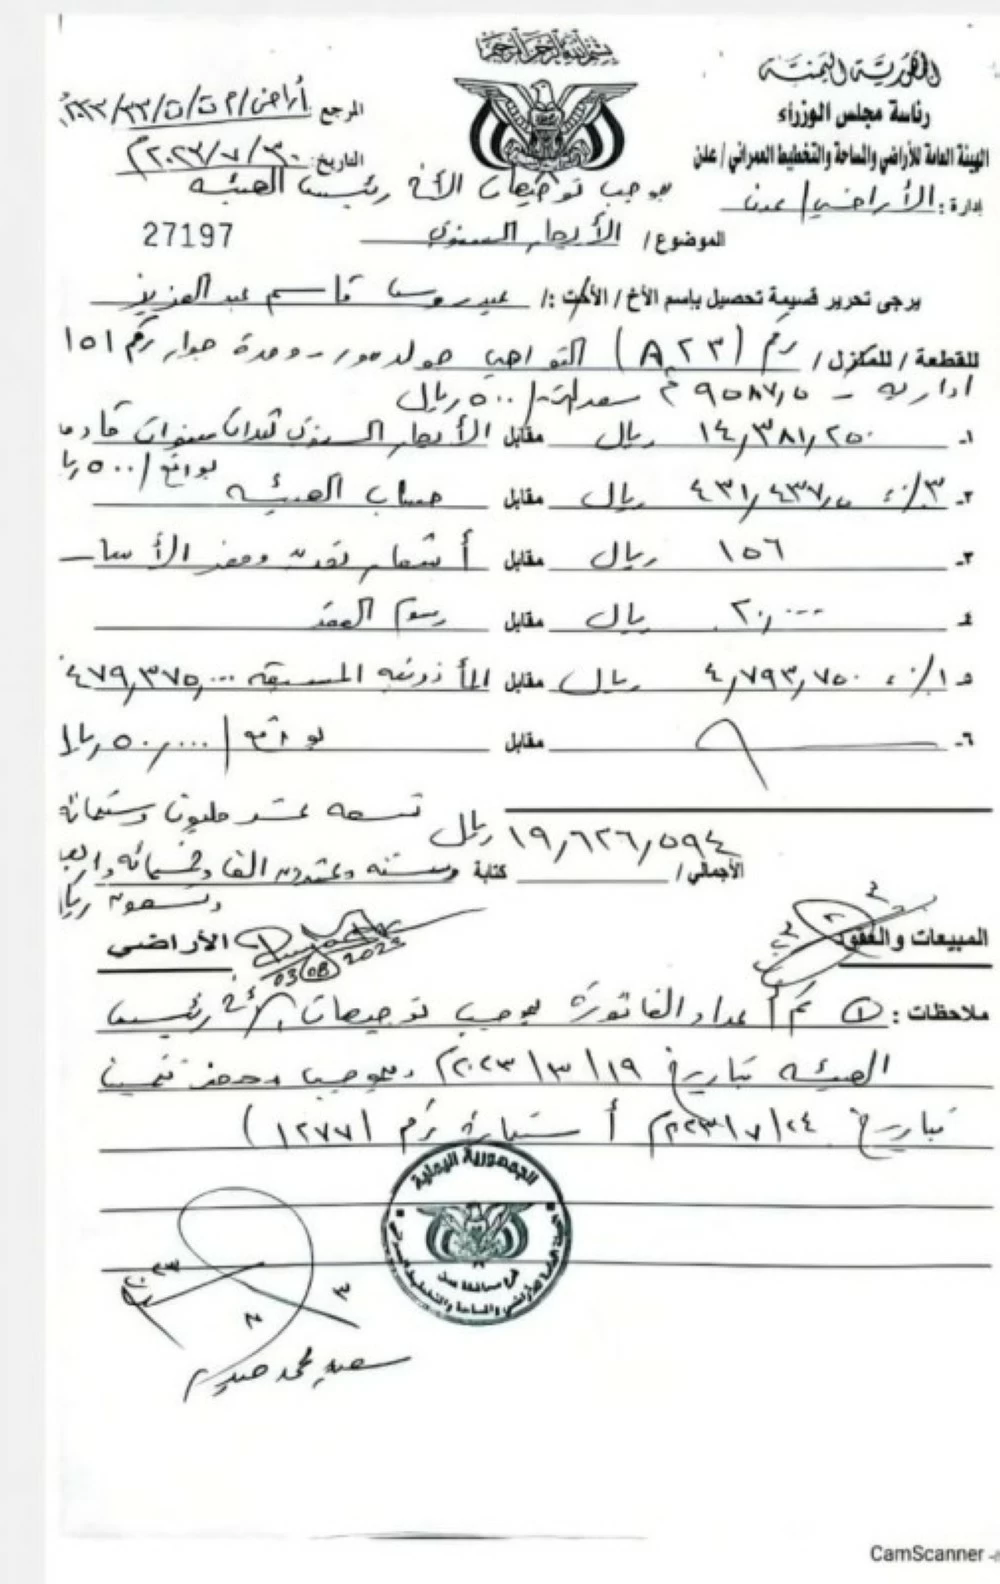 بسم الله الرحمن الرحيم
الجمهورية اليمنية
رئاسة مجلس الوزراء
الهيئة العامة للأراضي والمساحة والتخطيط العمراني / عدن
إدارة: الأراضي / عدن
المرجع أراضي / م ت / ن
التاريخ: ٣٠/٧/٢٠٢٣م
بموجب توجيهات الأخ رئيس الهيئة
الموضوع / الأيجار السنوي
27197
يرجى تحرير قسيمة تحصيل بإسم الأخ / الأخت :/ عيدروس قاسم عبدالعزيز
للقطعة / للمنزل / رقم (A ٢٣) التواهي جولدمور - وحدة جوار رقم ١٥١
ادارية - ٩٥٨٧,٥ م٢ /٥٠٠ ريال
١- ١٤,٣٨١,٢٥٠ ريال مقابل الأيجار السنوي ثلاث سنوات قادمة
بواقع /٥٠٠ ريال
٢- ٣٪ ٤٣١,٤٣٧,٥ ريال مقابل حساب الهيئة
٣- ١٥٦ ريال مقابل أستمارة تقديم ومحضر الأساس
٤- ٢٠,٠٠٠ ريال مقابل رسوم العقد
٥- ١٪ ٤,٧٩٣,٧٥٠ ريال مقابل المأذونية المسبقة ٤٧٩,٣٧٥,٠٠٠
٦- مقابل بواقع /٥٠,٠٠٠ ريال
الأجمالي / ١٩,٦٢٦,٥٩٤ ريال كتابة تسعة عشر مليون وستمائة
وستة وعشرون الفا وخمسمائة واربعة
وتسعون ريال
المبيعات والعقود
الأراضي
03/08/2023
ملاحظات : ① تم أعداد الفاتورة بموجب توجيهات الأخ رئيس
الهيئة بتاريخ ١٩/٣/٢٠٢٣م وبموجب محضر تثمين
بتاريخ ٢٤/٧/٢٠٢٣م أستمارة رقم (١٢٧٧)
الجمهورية اليمنية
الهيئة العامة للأراضي والمساحة والتخطيط العمراني
فرع محافظة عدن
سعيد محمد
CamScanner